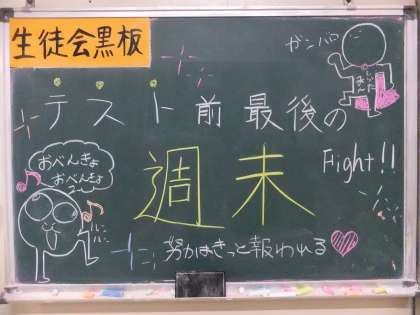 生徒会黒板
ガンバロ
テスト前最後の
週末
Fight!!
おべんきょ
おべんきょ
ルン
ルン
努力はきっと報われる